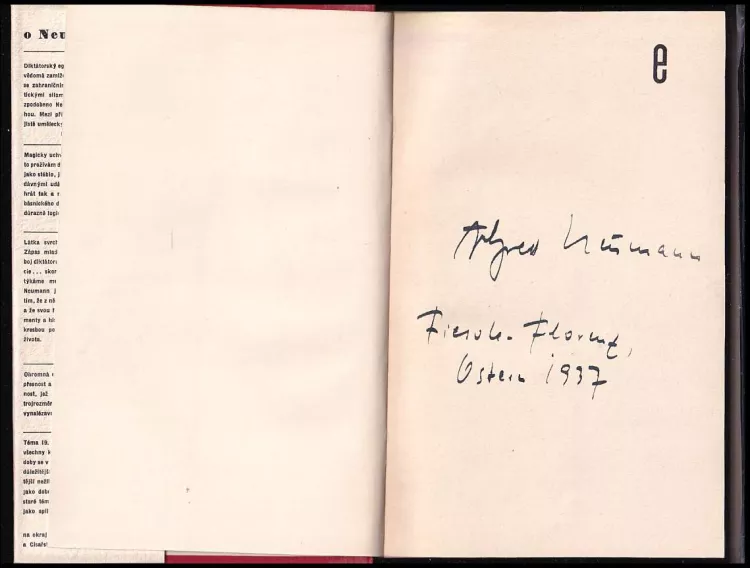 o Neu
Diktátorský eg
vědomá zamlž
se zahraničním
tickými silam
zpodobeno Ne
hou. Mezi pří
jistě umělecky
Magicky uchv
to prožívám d
jako stéblo, j
dávnými udá
hrát tak a n
básnického d
důrazná logi
Látka svrch
Zápas mlad
boj diktátor
cie... skor
týkáme m
Neumann j
tím, že z ně
a že svou f
manty a hi
kresbou po
života.
Ohromná
přesnost a
nost, jež
trojrozměr
vynalézav
Téma 19.
všechny k
doby se v
důležitějš
tější než
jako dob
staré tém
jako opil
na okraj
a Císař
e
Alfred Neumann
Fiesole-Florenz,
Ostern 1937